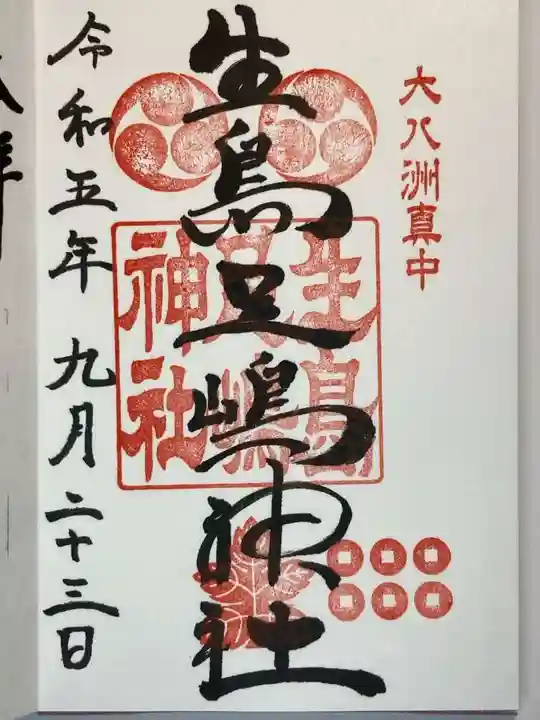 大八洲真中
生島足嶋神社
生島
足嶋
神社
令和五年 九月二十三日
拝